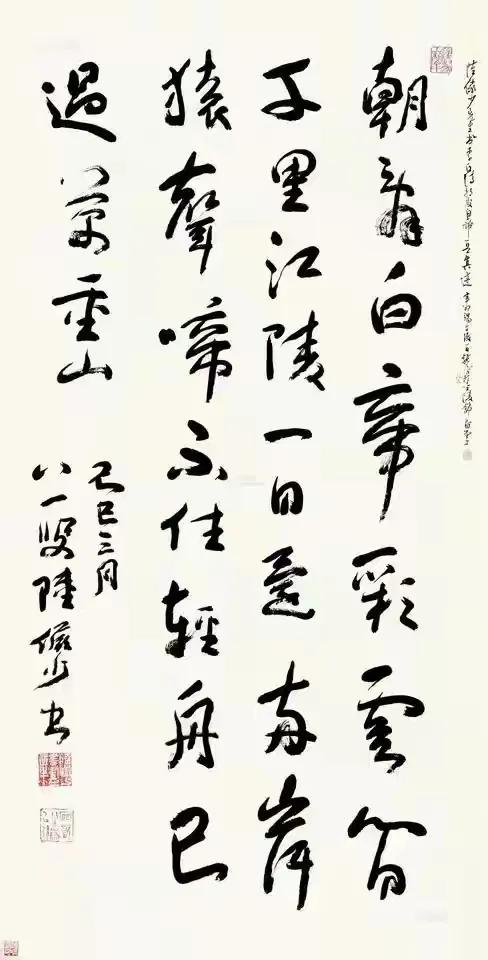 朝辭白帝彩雲間
千里江陵一日還兩岸
猿聲啼不住輕舟已
過萬重山
己巳三月
八一叟陸儼少書